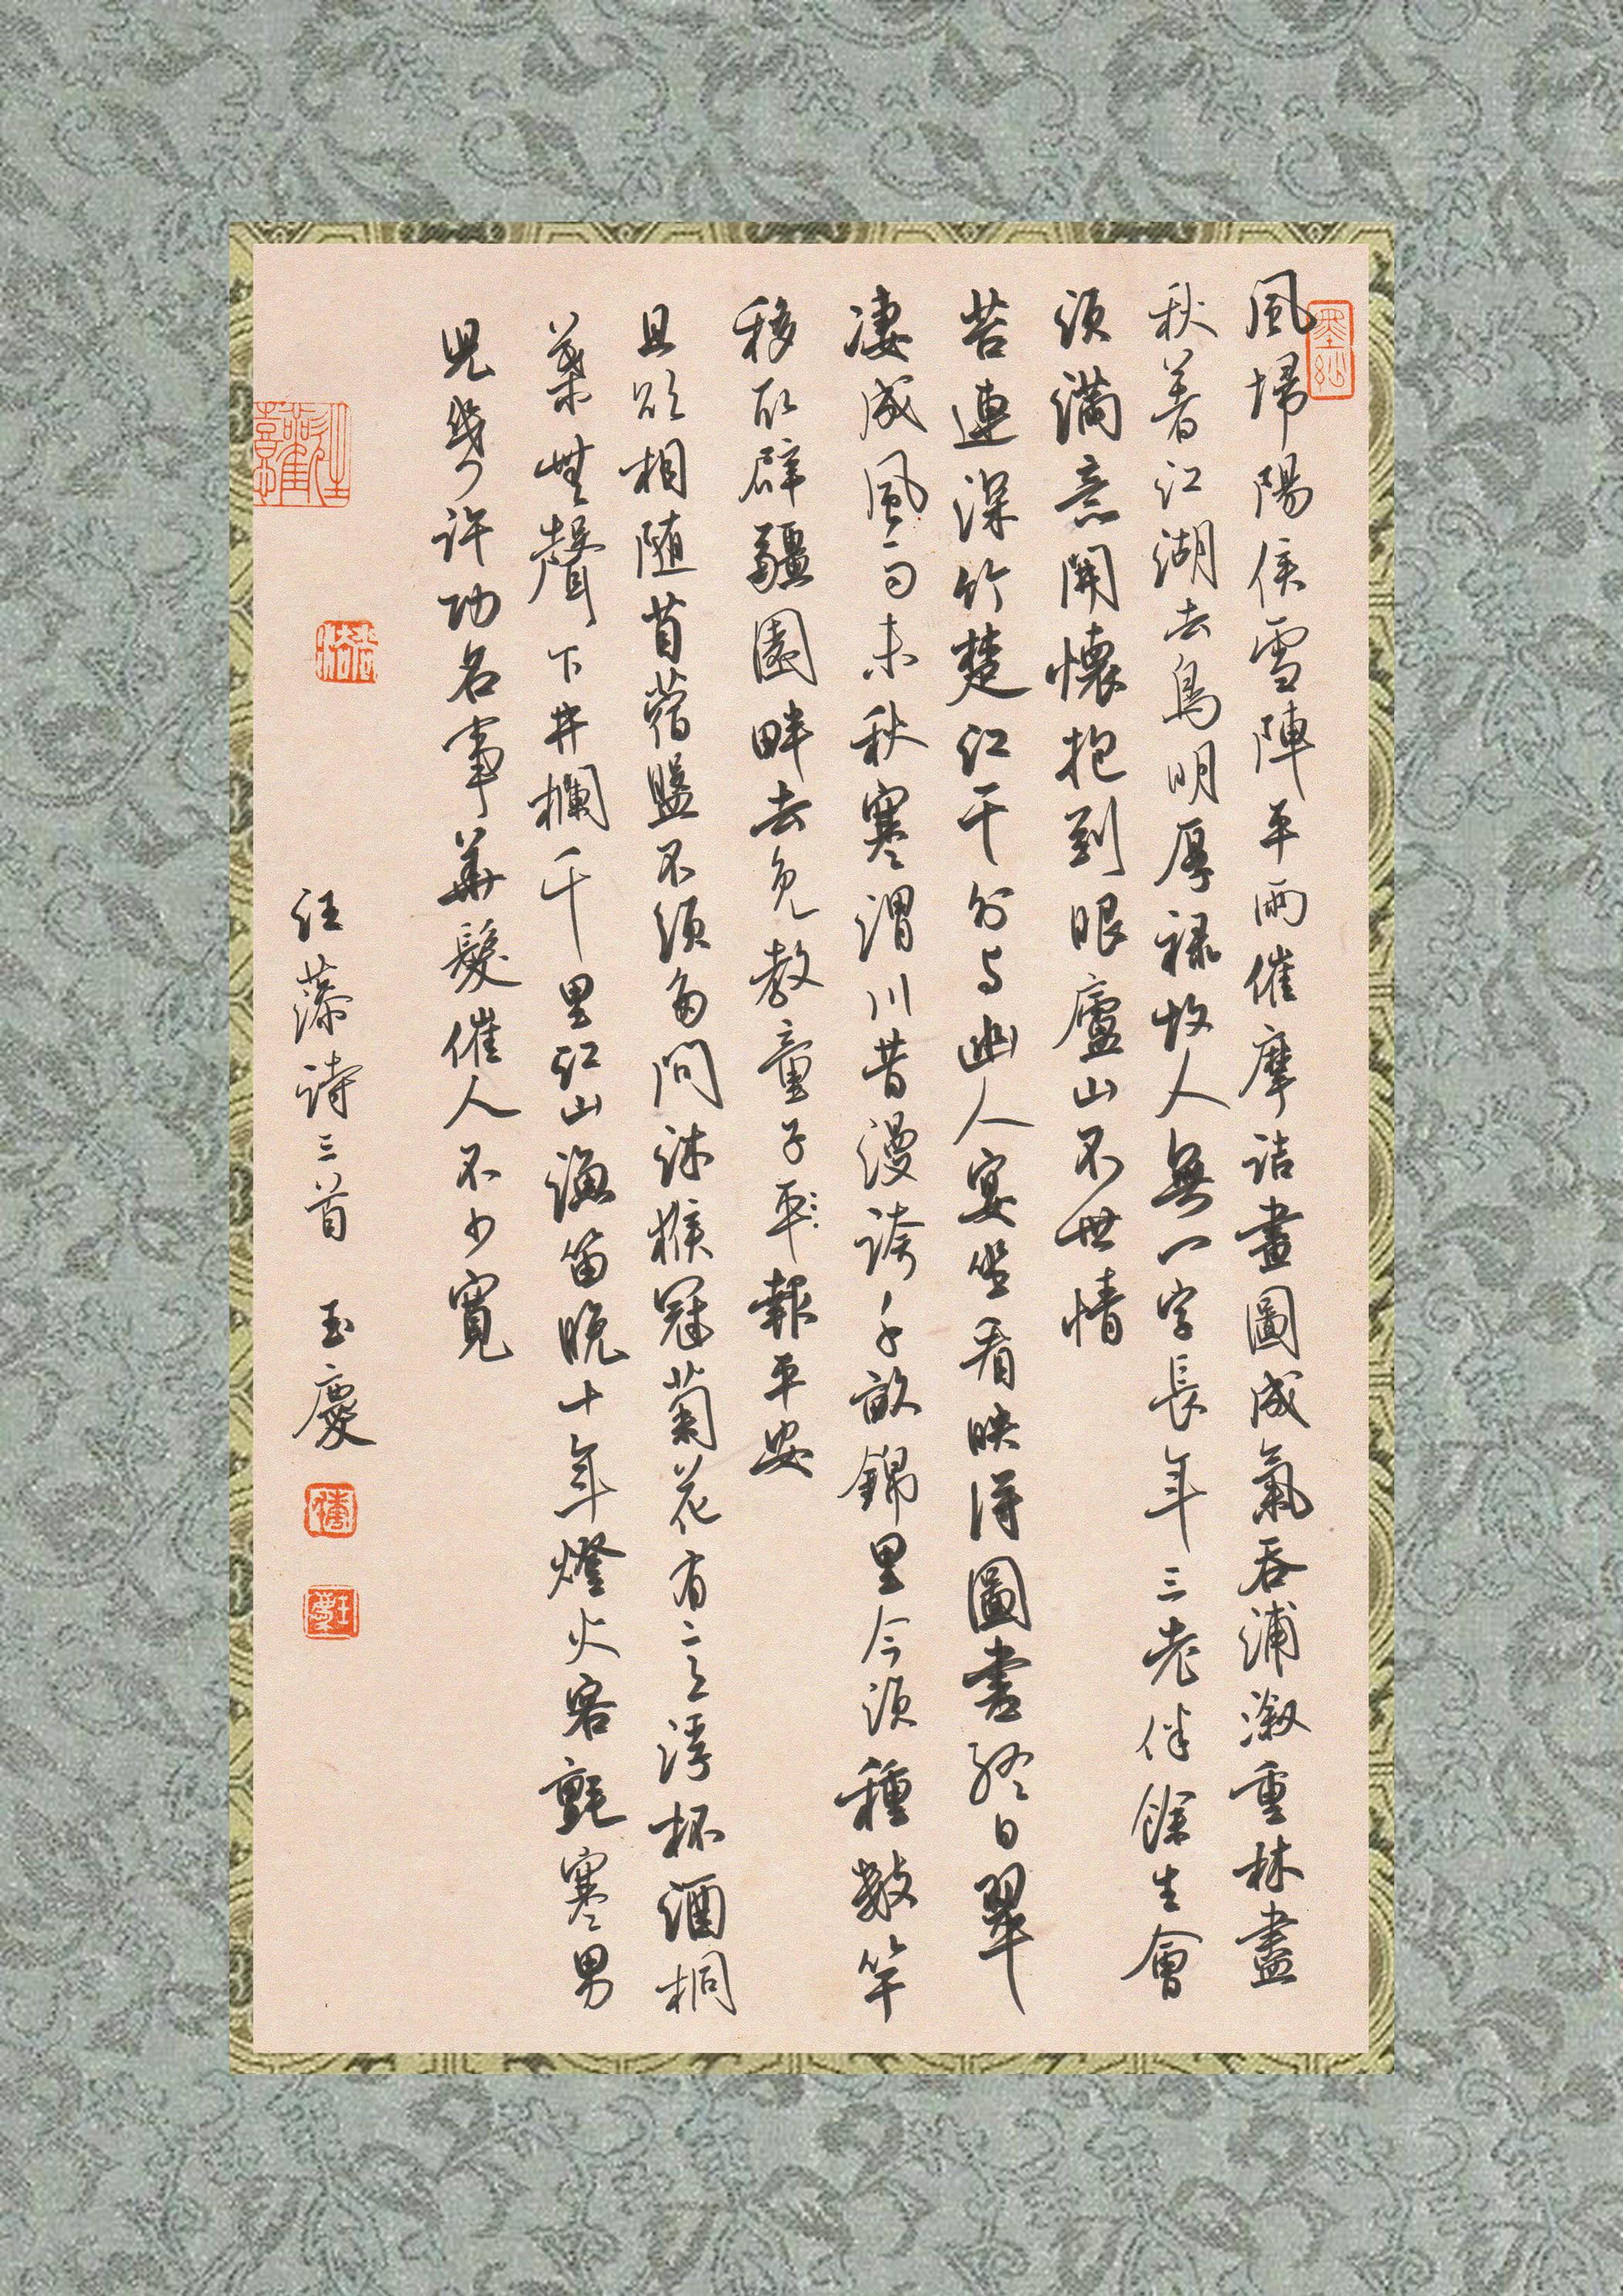 風埽陽侯雪陣平雨催摩詰畫圖成氣吞浦漵重林盡
秋著江湖去鳥明厚祿故人無一字長年三老伴餘生會
須滿意開懷抱到眼廬山不世情
苔連深竹楚江干分与幽人宴坐看映得圖書終日翠
凄成風雨未秋寒渭川昔漫誇千畝錦里今須種數竿
移取辟疆園畔去免教童子平報平安
且欲相随苜蓿盤不須多問沐猴冠菊花有意浮杯酒桐
葉無聲下井欄千里江山漁笛晚十年燈火客氈寒男
兒幾許功名事華髮催人不少寬
汪藻詩三首 玉慶